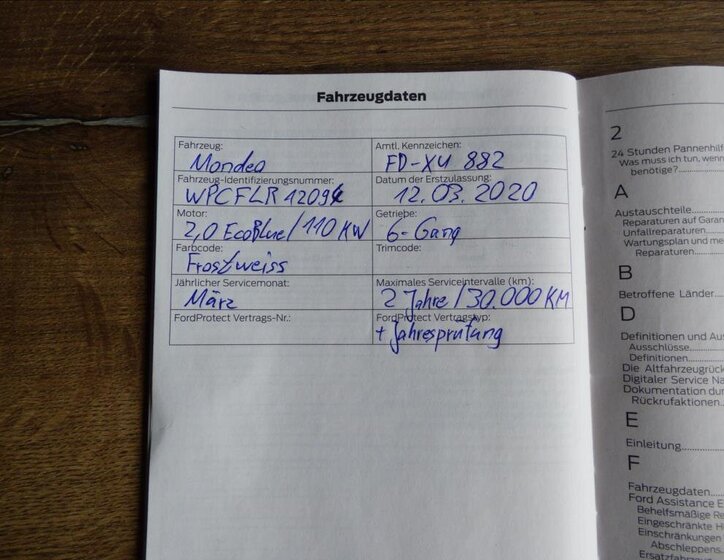 Fahrzeugdaten
Fahrzeug:
Mondeo
Amtl. Kennzeichen:
FD-XU 882
Fahrzeug-Identifizierungsnummer:
Datum der Erstzulassung:
12.03.2020
Motor:
2,0 EcoBlue/110 KW
Getriebe:
6-Gang
Farbcode:
Frostweiss
Trimcode:
Jährlicher Servicemonat:
März
Maximales Serviceintervalle (km):
2 Jahre/30.000 KM
FordProtect Vertrags-Nr.:
FordProtect Vertragstyp:
+ Jahresprüfung
2
24 Stunden Pannenhilf
Was muss ich tun, wenn
benötige?
A
Austauschteile
Reparaturen auf Garan
Unfallreparaturen
Wartungsplan und me
Reparaturen
B
Betroffene Länder
D
Definitionen und Au
Ausschlüsse
Definitionen
Die Altfahrzeugrück
Digitaler Service Na
Dokumentation dur
Rückrufaktionen
E
Einleitung
F
Fahrzeugdaten
Ford Assistance E
Behelfsmäßige Re
Eingeschränkte H
Einschränkungen
Abschleppe
Ersatzfahrze